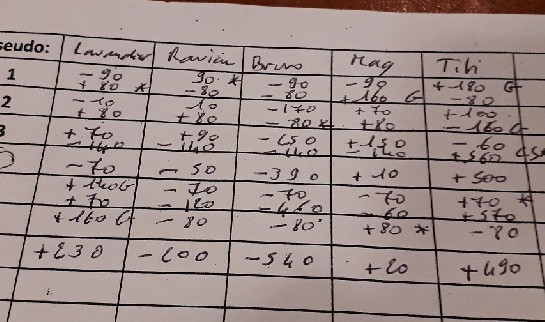 seudo: Bruno Mag Titi
1 -90 90 * -90 -90 +180 G
+80 * -80 -80 +160 G -80
2 -10 10 -170 +70 +100
+80 +80 -80 * +80 -160 G
3 +70 +90 -250 +150 -60
-140 -140 -140 -140 +560
-70 -50 -390 +10 +500
+140G -70 -70 -70 +70 *
+70 -120 -460 -60 +570
+160 G -80 -80 +80 * -80
+230 -200 -540 +20 +490